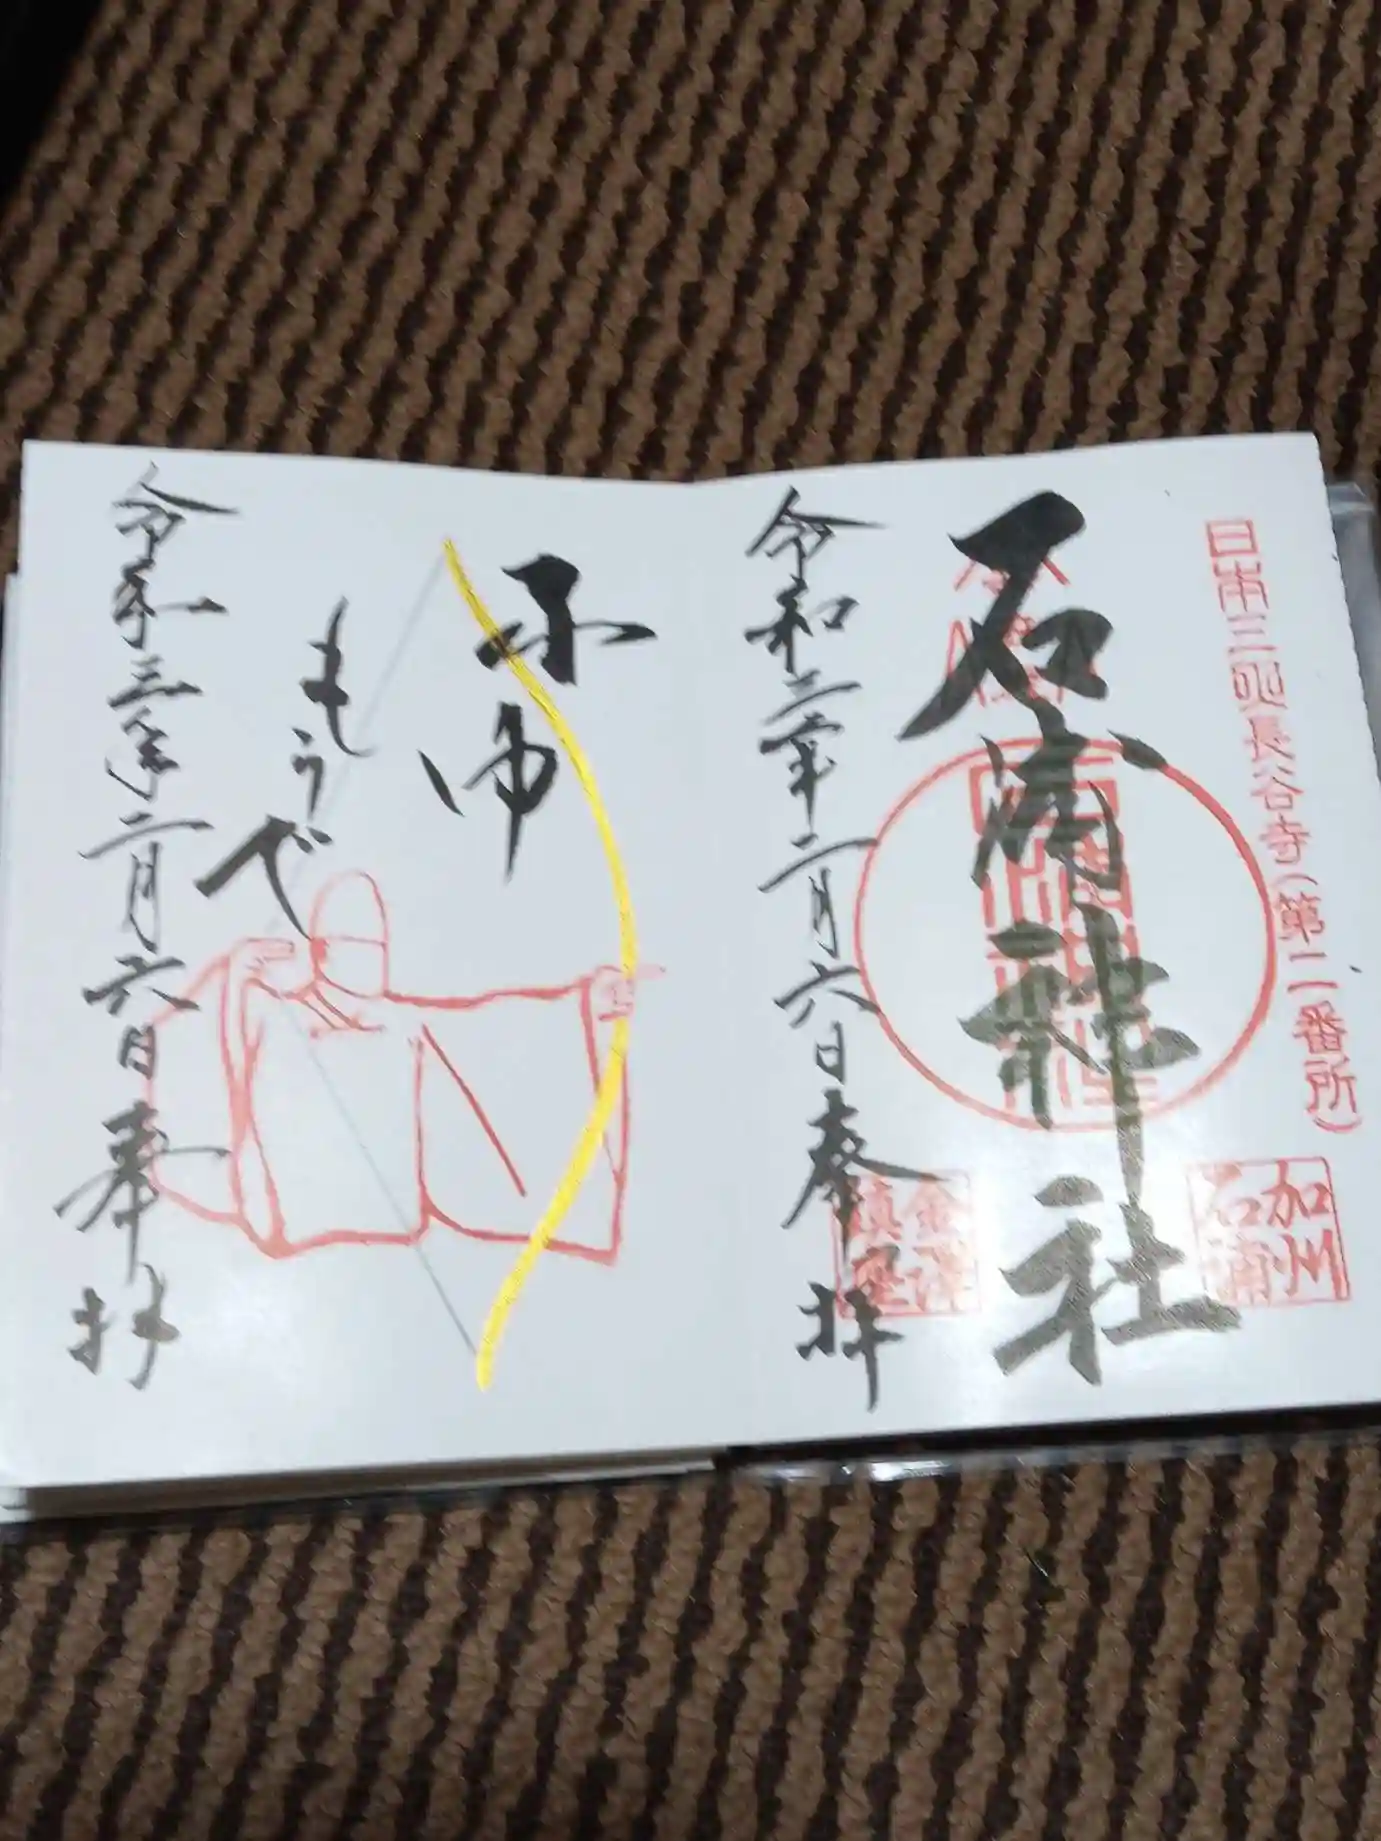 日本三所長谷寺(第二番所)
石浦神社
加州
石浦
金澤
鎮座
令和三年二月六日奉拝
もうで
令和三年二月六日奉拝